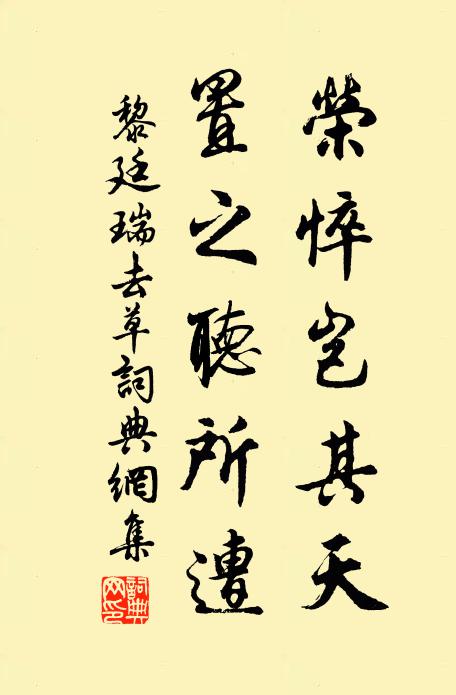 榮悴豈其天
置之聽所遭
黎廷瑞去草詞典網集
詞典網印